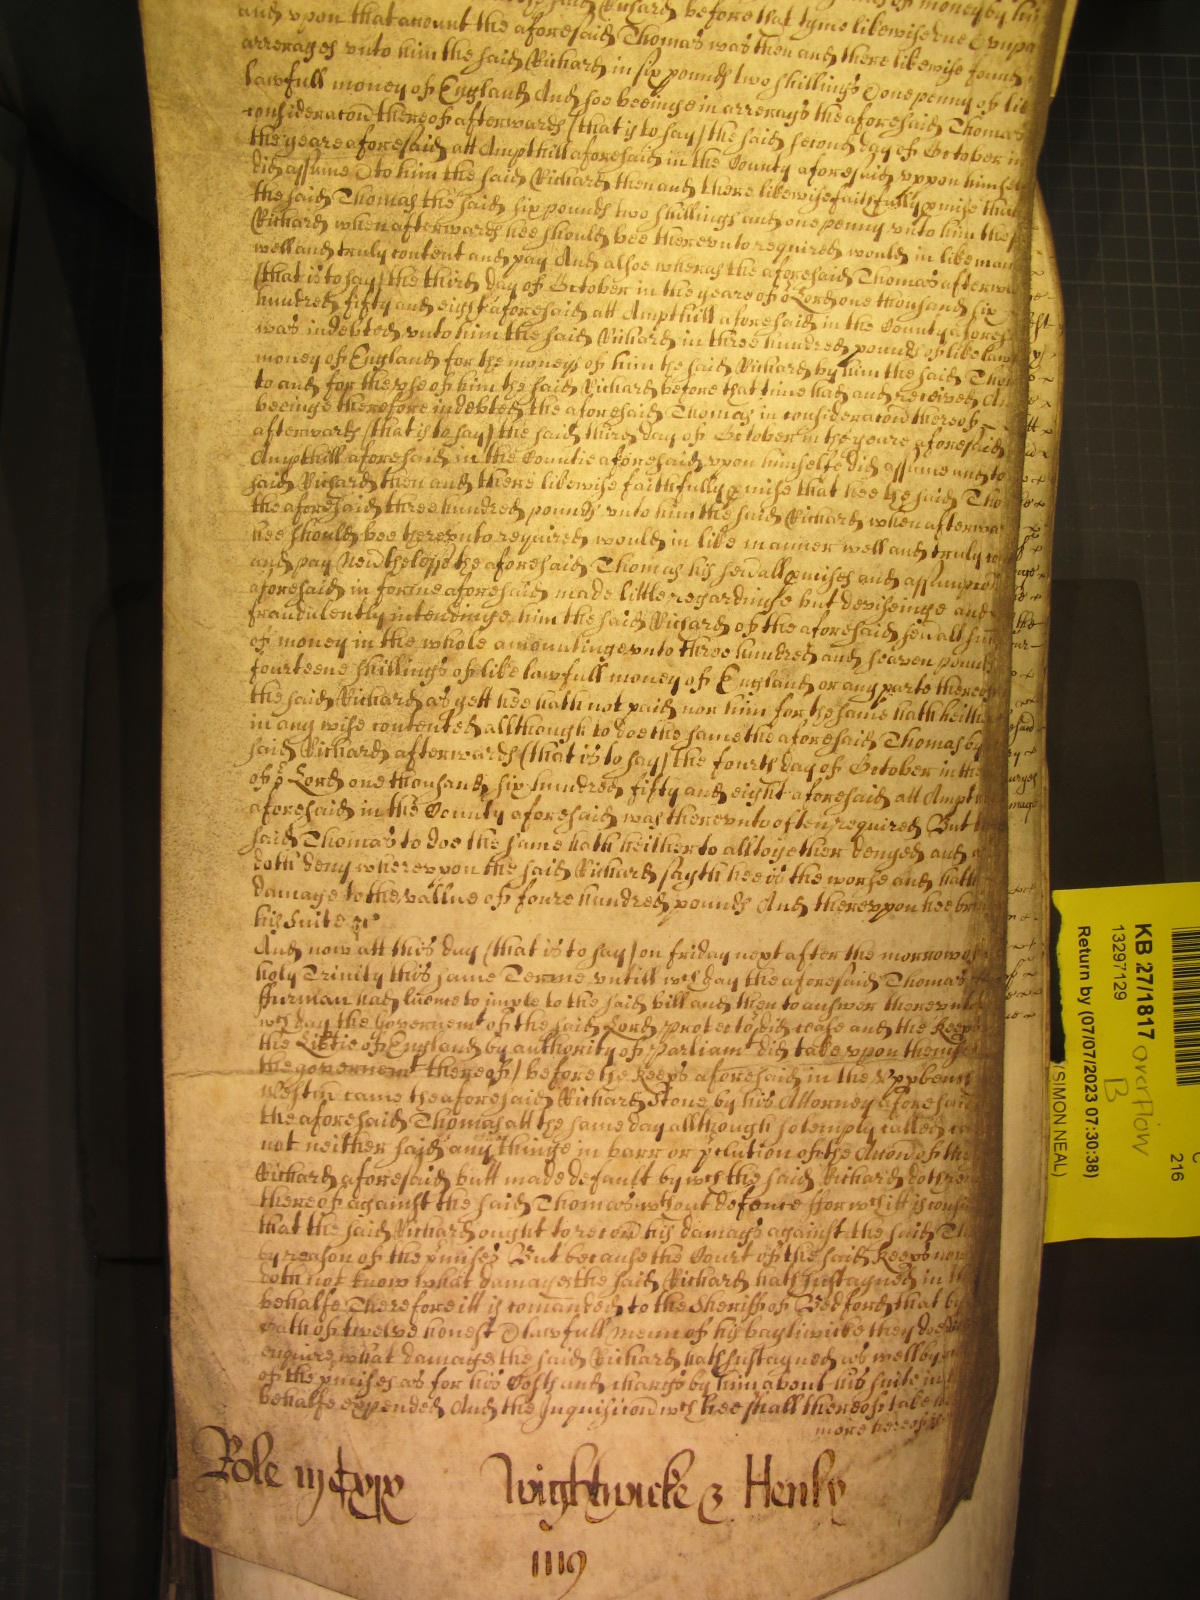 and vpon that account the aforesaid Thomas was then and there likewise found
arrerages vnto him the said Richard in six pounds two shillings & one penny of
lawfull money of England And soe beeinge in arrerags the aforesaid Thomas
consideracon thereof afterwards (that is to say) the said second day of October in
the yeare aforesaid att Ampthill aforesaid in the County aforesaid vppon himself
did assume & to him the said Richard then and there likewise faithfully pmise that
the said Thomas the said six pounds two shillings and one penny vnto him the
Richard when afterwards hee should bee therevnto required would in like man
well and truly content and pay And alsoe wheras the aforesaid Thomas afterwa
(that is to say) the third day of October in the yeare of or Lord one thousand six
hundred fifty and eight aforesaid att Ampthill aforesaid in the County afores
was indebted vnto him the said Richard in three hundred pounds of like law
money of England for the moneys of him the said Richard by him the said Tho
to and for the vse of him the said Richard before that time had and received And
beeinge therefore indebted the aforesaid Thomas in consideracon thereof
afterwards (that is to say) the said third day of October in the yeare aforesaid
Ampthill aforesaid in the Countie aforesaid vpon himselfe did assume and to
said Richard then and there likewise faithfully pmise that hee the said Tho
the aforesaid three hundred pounds vnto him the said Richard when afterwa
hee should bee therevnto required would in like manner well and truly con
and pay Neuthelesse the aforesaid Thomas his seuall pmises and assumpcons
aforesaid in forme aforesaid made little regardinge but deviseinge and
fraudulently intendinge him the said Richard of the aforesaid seuall sum
of money in the whole amountinge vnto three hundred and seaven pounds
fourteene shillings of like lawfull money of England or any parte thereof
the said Richard as yett hee hath not paid nor him for the same hath hitherto
in any wise contented allthough to doe the same the aforesaid Thomas by
said Richard afterwards (that is to say) the fourth day of October in the
of or Lord one thousand six hundred fifty and eight aforesaid att Ampt
aforesaid in the County aforesaid was therevnto often required But the
said Thomas to doe the same hath heitherto alltogether denyed and
doth deny wherevpon the said Richard sayth hee is the worse and hath
damage to the vallue of foure hundred pounds And therevpon hee bri
his suite &c
And now att this day (that is to say) on friday next after the morrow of
holy Trinity this same Terme vntill wch day the aforesaid Thomas
ffurman had licence to imple to the said bill and then to answer therevnto
wch day the governemt of the said Lord Protector did cease and the Keeps
the Libtie of England by authority of Parliamt did take vpon themse
the governemt thereof) before the Keeps aforesaid in the Vpp bench
Westm came the aforesaid Richard Stone by his Attorney aforesaid
the aforesaid Thomas att the same day allthough solemply called ca
not neither said any thinge in barr or pclusion of the Accon of the
Richard aforesaid butt made default by wch the said Richard doth rem
thereof against the said Thomas wthout defence ffor wch itt is consid
that the said Richard ought to recou his damags against the said Tho
by reason of the pmises But because the Court of the said Keeps now
doth not know what damages the said Richard hath sustayned in th
behalfe Therefore itt is comanded to the Sheriff of Bedford that by
oath of twelve honest & lawfull menn of his bayliwicke they doe
enquire what damages the said Richard hath sustayned as well by
of the pmises as for his Costs and chargs by him about his suite in
behalfe expended And the Inquisicon wch hee shall thereof take
more hereof
Role
Wightwicke & Henly
1119
KB 27/1817 overflow
B
13297129
Return by (07/07/2023 07:30:38)
(SIMON NEAL)
216